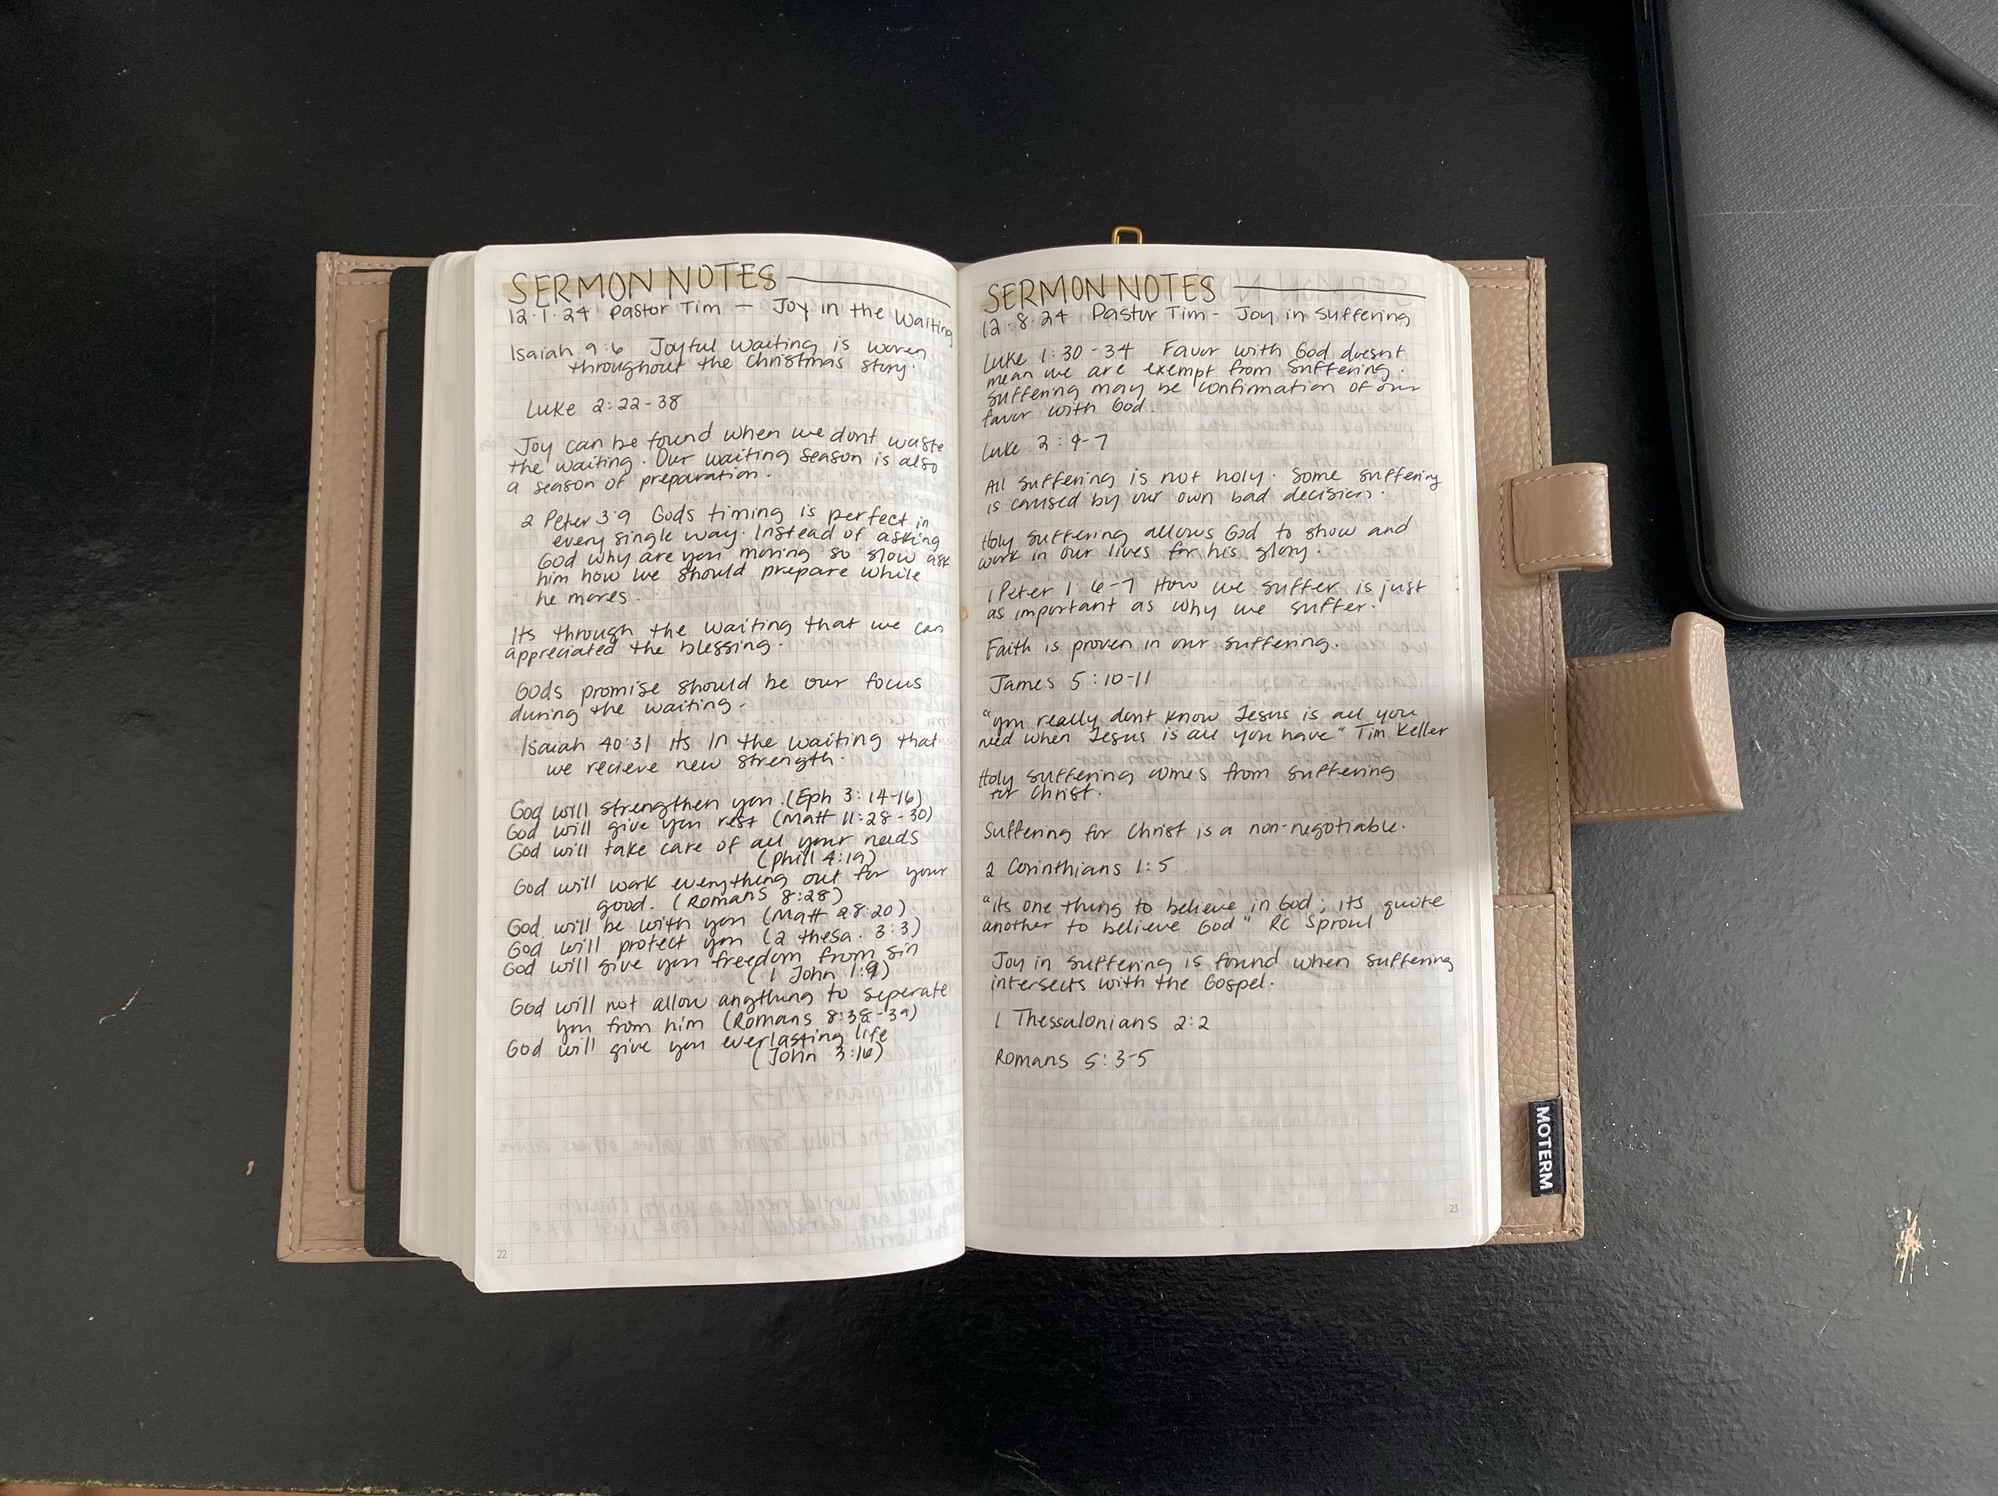 SERMON NOTES
12.1.24 Pastor Tim — Joy in the Waiting
Isaiah 9:6 Joyful waiting is woven
throughout the Christmas story.
Luke 2:22-38
Joy can be found when we dont waste
the waiting. Our waiting season is also
a season of preparation.
2 Peter 3:9 Gods timing is perfect in
every single way. Instead of asking
God why are you moving so slow ask
him how we should prepare while
he moves.
Its through the waiting that we can
appreciated the blessing.
Gods promise should be our focus
during the waiting.
Isaiah 40:31 its in the waiting that
we recieve new strength.
God will strengthen you. (Eph 3:14-16)
God will give you rest (Matt 11:28-30)
God will take care of all your needs
(Phill 4:19)
God will work everything out for your
good. (Romans 8:28)
God will be with you (Matt 28:20)
God will protect you (2 thesa. 3:3)
God will give you freedom from sin
(1 John 1:9)
God will not allow anything to seperate
you from him (Romans 8:38-39)
God will give you everlasting life
(John 3:16)
22
SERMON NOTES
12.8.24 Pastor Tim - Joy in suffering
Luke 1:30-34 Favor with God doesnt
mean we are exempt from suffering.
Suffering may be confirmation of our
favor with God.
Luke 2:4-7
All suffering is not holy. Some suffering
is caused by our own bad decision.
Holy suffering allows God to show and
work in our lives for his glory.
1 Peter 1:6-7 How we suffer is just
as important as why we suffer.
Faith is proven in our suffering.
James 5:10-11
"you really dont know Jesus is all you
need when Jesus is all you have" Tim Keller
Holy suffering comes from suffering
for Christ.
Suffering for Christ is a non-negotiable.
2 Corinthians 1:5
"its one thing to believe in God; its quote
another to believe God" RC Sproul
Joy in suffering is found when suffering
intersects with the Gospel.
1 Thessalonians 2:2
Romans 5:3-5
23
MOTERM